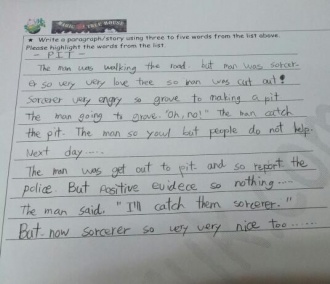 ★ Write a paragraph/story using three to five words from the list above.
Please highlight the words from the list.
- PIT -
The man was walking the road. but man was sorcer.
Er so very very love tree so man was cut out!
Sorcerer very angry so grove to making a pit
The man going to grove. "Oh, no!" The man catch
the pit. The man so yowl but people do not help.
Next day.....
The man was get out to pit. and so report the
police. But positive evidece so nothing....
The man said. "I'll catch them sorcerer."
But. now sorcerer so very very nice too......